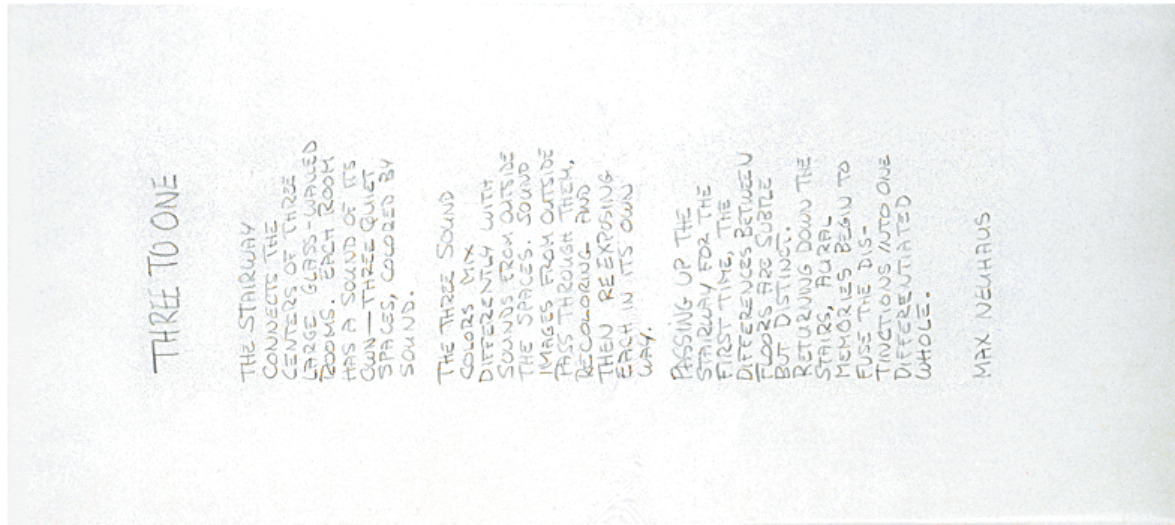 THREE TO ONE
THE STAIRWAY
CONNECTS THE
CENTERS OF THREE
LARGE GLASS-WALLED
ROOMS. EACH ROOM
HAS A SOUND OF ITS
OWN — THREE QUIET
SPACES, COLORED BY
SOUND.
THE THREE SOUND
COLORS MIX
DIFFERENTLY WITH
SOUNDS FROM OUTSIDE
THE SPACES. SOUND
IMAGES FROM OUTSIDE
PASS THROUGH THEM,
RECOLORING AND
THEN REEXPOSING
EACH IN ITS OWN
WAY.
PASSING UP THE
STAIRWAY FOR THE
FIRST TIME, THE
DIFFERENCES BETWEEN
FLOORS ARE SUBTLE
BUT DISTINCT.
RETURNING DOWN THE
STAIRS, AURAL
MEMORIES BEGIN TO
FUSE THE DIS-
TINCTIONS INTO ONE
DIFFERENTIATED
WHOLE.
MAX NEUHAUS